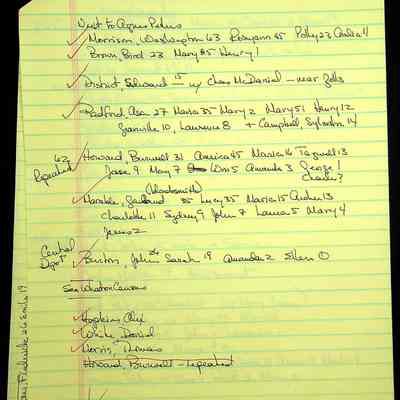 Next to Agnes Peters
Morrison, Washington 63 Rosyann 45 Polley 23 Andrea 11
Brown, Bird 23 Mary 45 Henry 1
District, Edward 15 w/ Chas McDaniel - near Zells
Radford, Asa 27 Maria 35 Mary 2 Mary 51 Henry 12
Granville 10, Laurence 8 + Campbell, Sylvester 14
62 Repeated Howard, Burwell 31 America 45 Maria 16 Tazwell 13
Jane 9 May 7 Wm 5 Amanda 3 George 1
Charles?
(Woodsmith)
35 Lucy 35 Maria 15 Archer 13
Charlotte 11 Sydney 9 John 7 Laura 5 Mary 4
James 2
Central Depot Burton, John 26 Sarah 19 Amanda 2 Ellen 0
See Wharton Census
Hopkins, Alex
White, David
Norris, Thomas
Howard, Burwell - repeated
Frederick 26 Emily 19